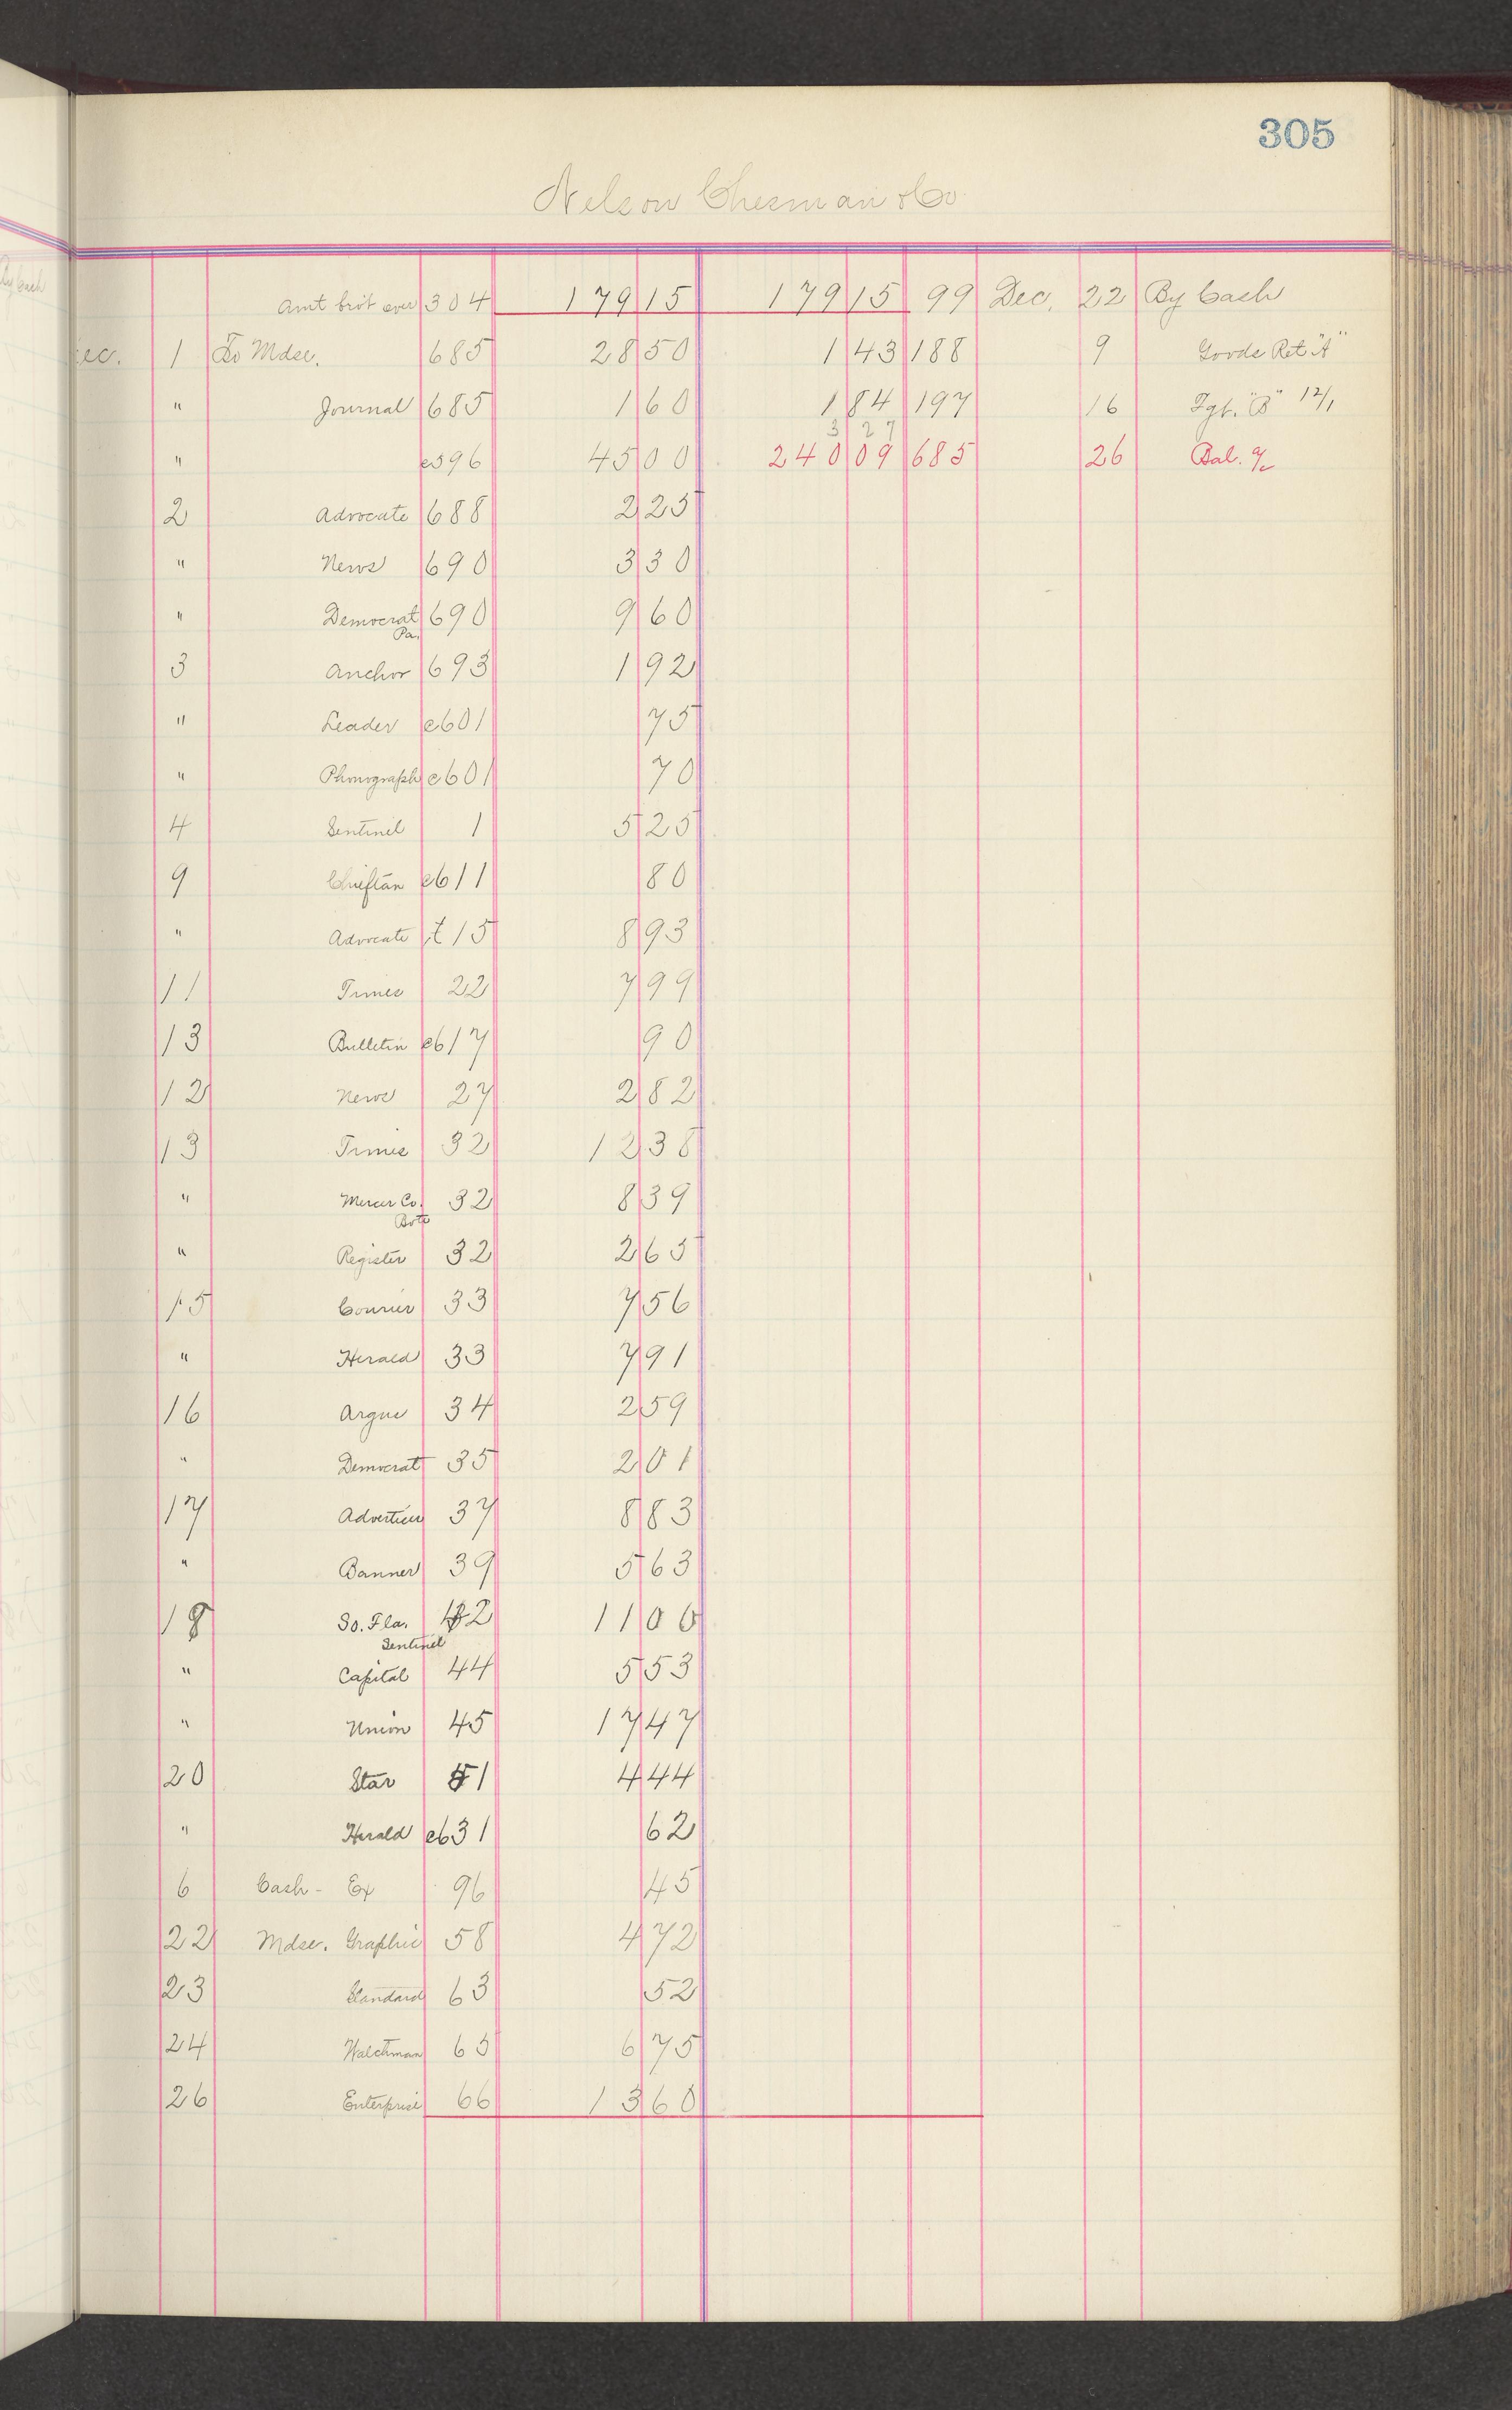 305
Nelson Chesman & Co
By Cash
Amt brot over 304 179 15 179 15 99 Dec. 22 By Cash
ec. 1 To Mdse. 685 28 50 1 43 188 9 Goods Ret "A"
" Journal 685 1 60 1 84 197 16 Fgt. "B" 12/1
3 27
" e596 45 00 240 09 685 26 Bal. a/c
2 Advocate 688 2 25
" News 690 3 30
" Democrat 690 9 60
Pa.
3 Anchor 693 1 92
" Leader e601 75
" Phonograph e601 70
4 Sentinel 1 5 25
9 Chieftan e611 80
" Advocate t15 8 93
11 Times 22 7 99
13 Bulletin e617 90
12 News 27 2 82
13 Times 32 12 38
" Mercer Co. 32 8 39
Bote
" Register 32 2 65
15 Courier 33 7 56
" Herald 33 7 91
16 Argus 34 2 59
" Democrat 35 2 01
17 Advertiser 37 8 83
" Banner 39 5 63
18 So. Fla. 42 11 06
Sentinel
" Capital 44 5 53
" Union 45 17 47
20 Star 51 4 44
" Herald e631 62
6 Cash - Ex 96 45
22 Mdse. Graphic 58 4 72
23 Standard 63 52
24 Watchman 65 6 75
26 Enterprise 66 13 60